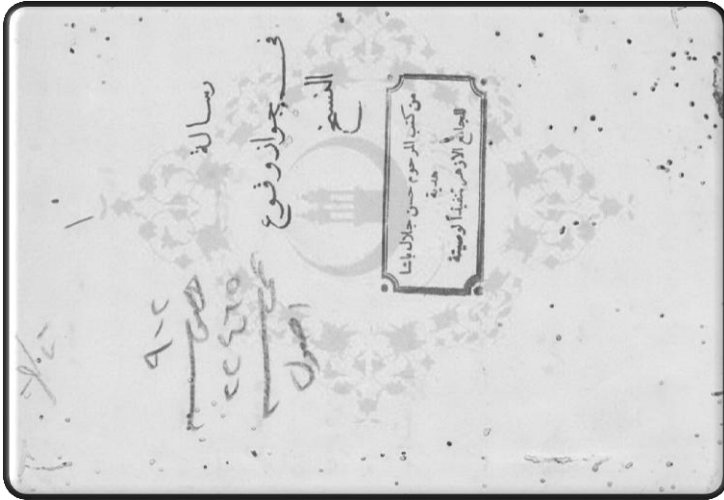 رسالة
في جواز وقوع
النسخ
من كتب المرحوم حسن جلال باشا
هدية
للجامع الأزهر تنفيذاً لوصيته
خصص
٩٠٢
عمر
٢٢٤٦٥
اصول